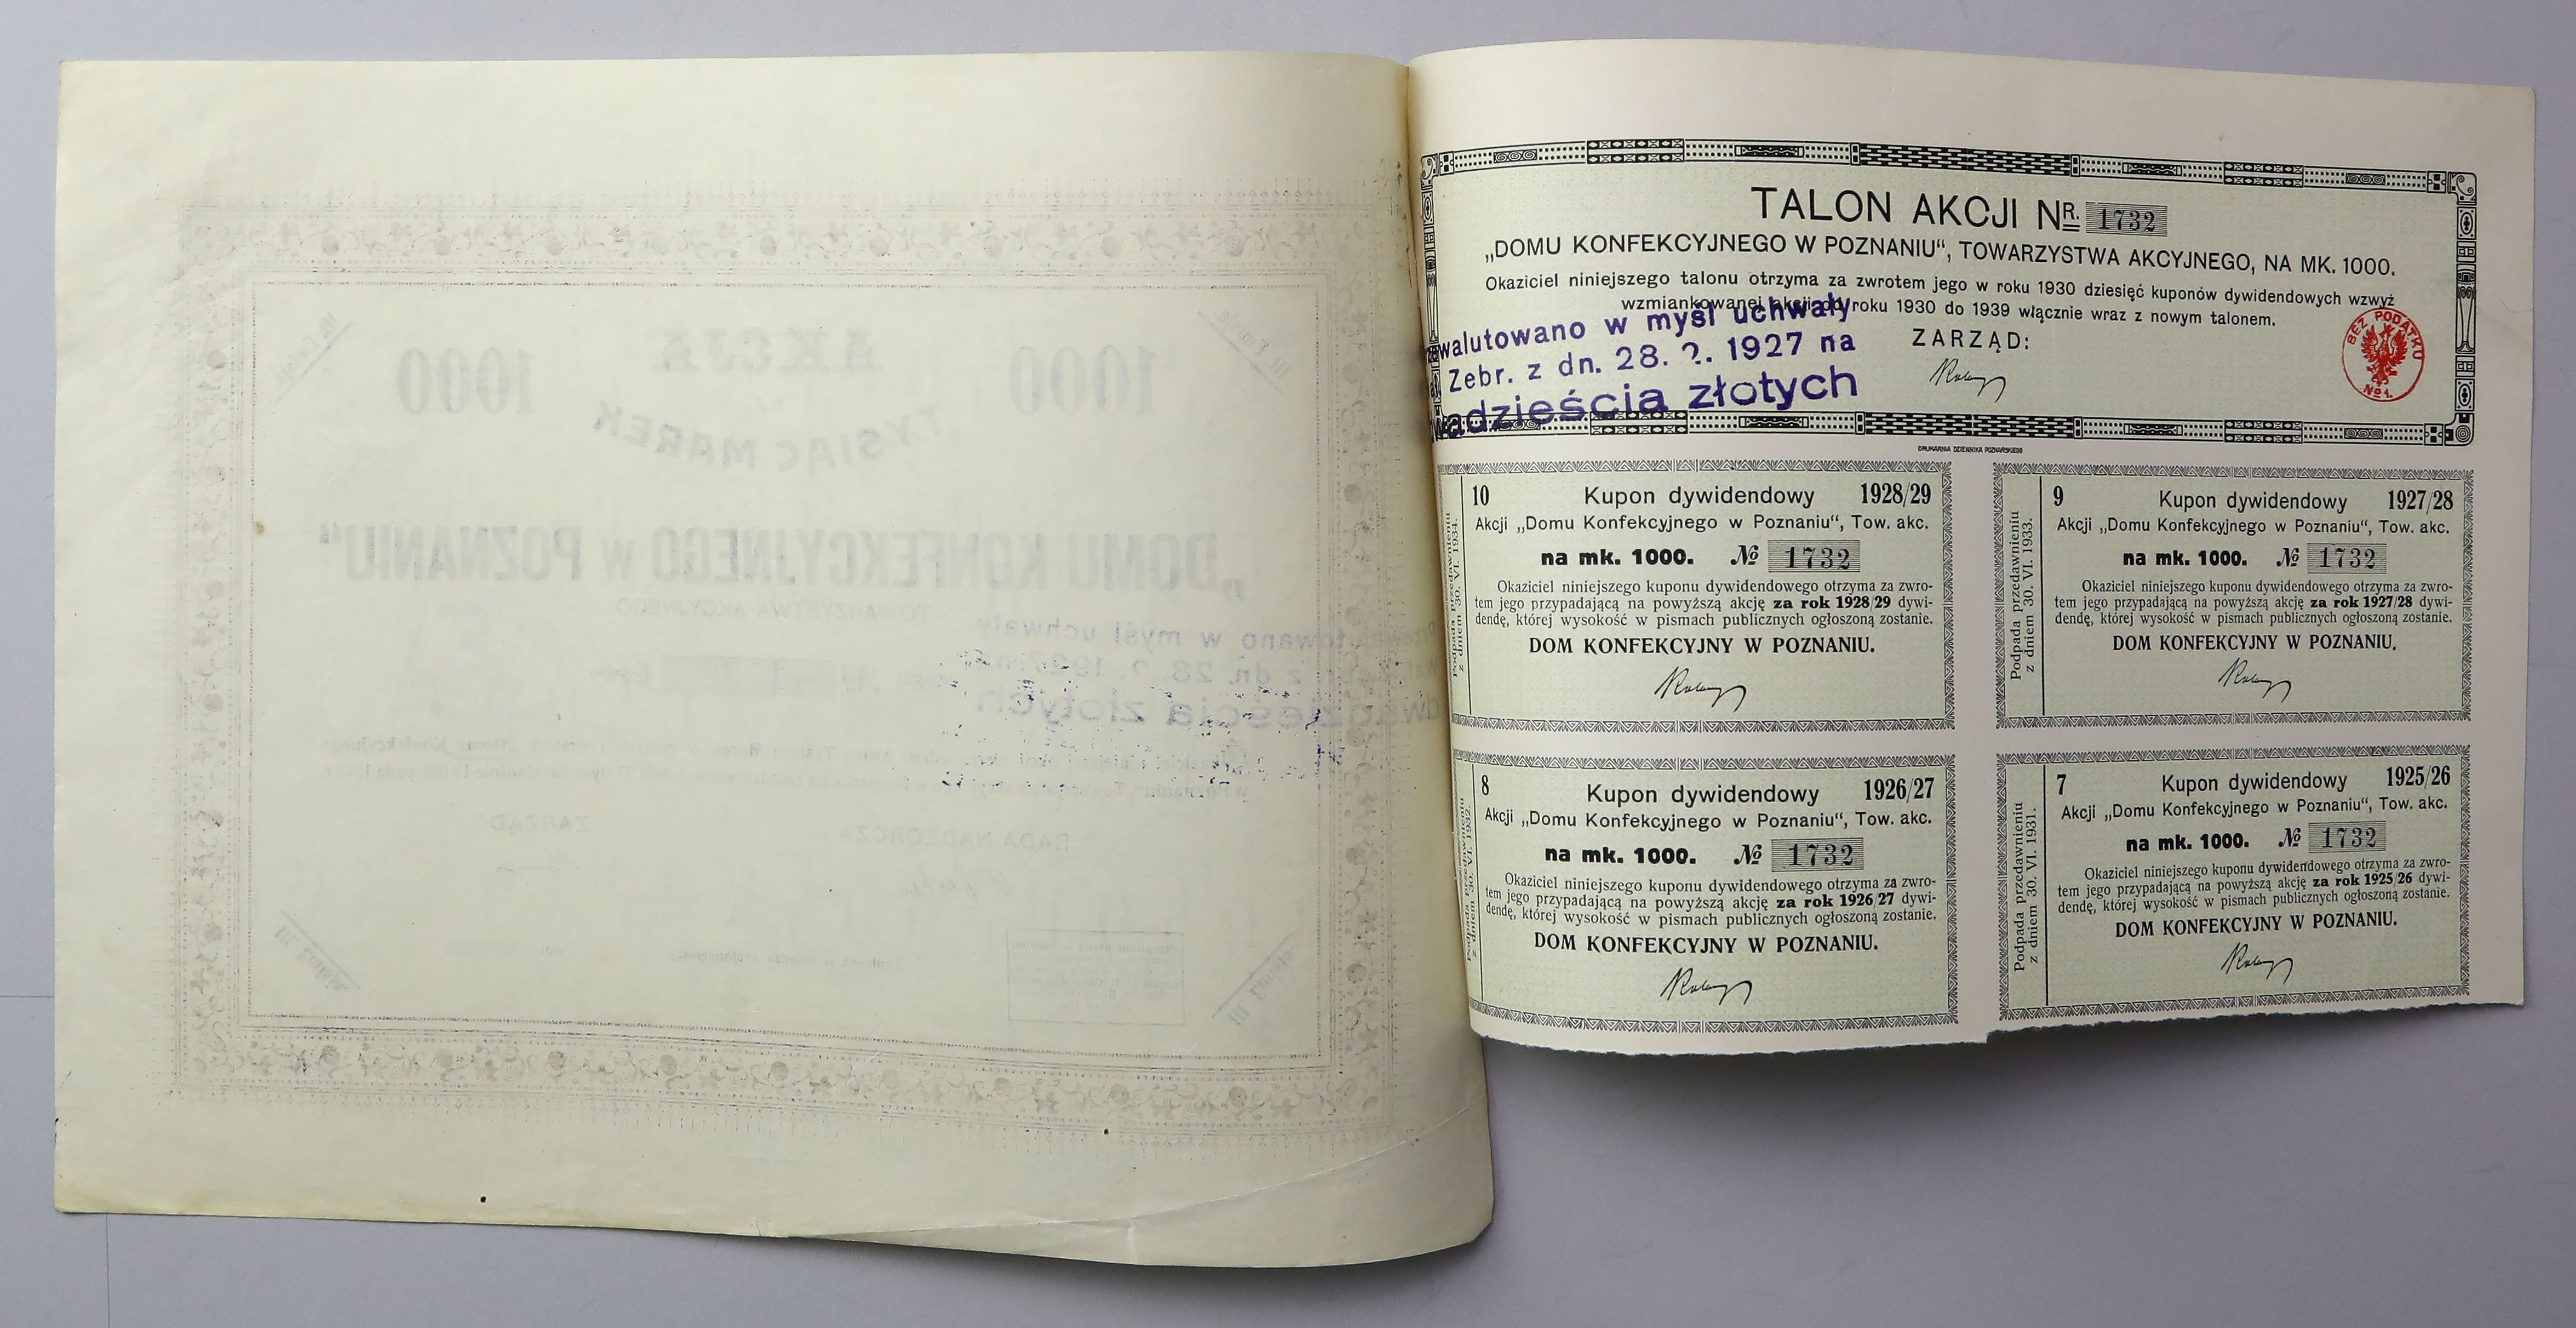 TALON AKCJI NR. 1732
„DOMU KONFEKCYJNEGO W POZNANIU“, TOWARZYSTWA AKCYJNEGO, NA MK. 1000.
Okaziciel niniejszego talonu otrzyma za zwrotem jego w roku 1930 dziesięć kuponów dywidendowych wzwyż
wzmiankowanej akcji od roku 1930 do 1939 włącznie wraz z nowym talonem.
walutowano w myśl uchwały
Zebr. z dn. 28. 2. 1927 na
adzieścia złotych
ZARZĄD:
BEZ PODATKU
No 1.
DRUKARNIA DZIENNIKA POZNAŃSKIEGO
10 Kupon dywidendowy 1928/29
Akcji „Domu Konfekcyjnego w Poznaniu“, Tow. akc.
na mk. 1000. № 1732
Okaziciel niniejszego kuponu dywidendowego otrzyma za zwro-
tem jego przypadającą na powyższą akcję za rok 1928/29 dywi-
dendę, której wysokość w pismach publicznych ogłoszoną zostanie.
DOM KONFEKCYJNY W POZNANIU.
Podpada przedawnieniu
z dniem 30. VI. 1934.
9 Kupon dywidendowy 1927/28
Akcji „Domu Konfekcyjnego w Poznaniu“, Tow. akc.
na mk. 1000. № 1732
Okaziciel niniejszego kuponu dywidendowego otrzyma za zwro-
tem jego przypadającą na powyższą akcję za rok 1927/28 dywi-
dendę, której wysokość w pismach publicznych ogłoszoną zostanie.
DOM KONFEKCYJNY W POZNANIU.
Podpada przedawnieniu
z dniem 30. VI. 1933.
8 Kupon dywidendowy 1926/27
Akcji „Domu Konfekcyjnego w Poznaniu“, Tow. akc.
na mk. 1000. № 1732
Okaziciel niniejszego kuponu dywidendowego otrzyma za zwro-
tem jego przypadającą na powyższą akcję za rok 1926/27 dywi-
dendę, której wysokość w pismach publicznych ogłoszoną zostanie.
DOM KONFEKCYJNY W POZNANIU.
Podpada przedawnieniu
z dniem 30. VI. 1932.
7 Kupon dywidendowy 1925/26
Akcji „Domu Konfekcyjnego w Poznaniu“, Tow. akc.
na mk. 1000. № 1732
Okaziciel niniejszego kuponu dywidendowego otrzyma za zwro-
tem jego przypadającą na powyższą akcję za rok 1925/26 dywi-
dendę, której wysokość w pismach publicznych ogłoszoną zostanie.
DOM KONFEKCYJNY W POZNANIU.
Podpada przedawnieniu
z dniem 30. VI. 1931.
AKCJA
1000 1000
TYSIĄC MAREK
„DOMU KONFEKCYJNEGO W POZNANIU“
TOWARZYSTWA AKCYJNEGO
RADA NADZORCZA
ZARZĄD